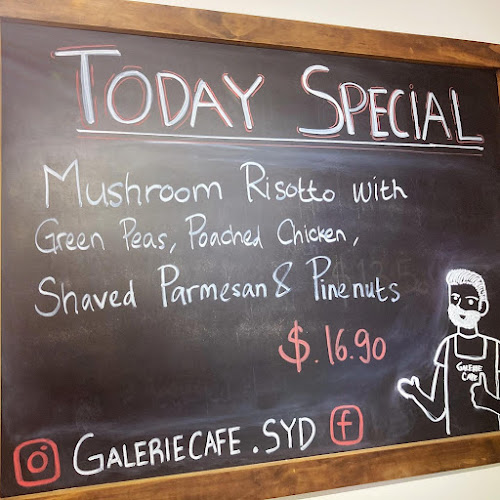 TODAY SPECIAL
Mushroom Risotto with
Green Peas, Poached Chicken,
Shaved Parmesan & Pinenuts
$.16.90
GALERIE
CAFE
GALERIECAFE.SYD